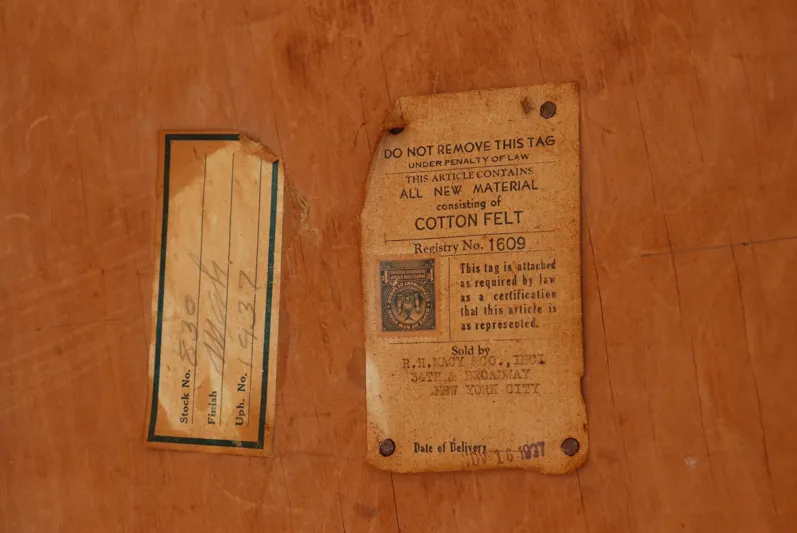 Stock No. 830
Finish Mah
Uph. No. 1937
DO NOT REMOVE THIS TAG
UNDER PENALTY OF LAW
THIS ARTICLE CONTAINS
ALL NEW MATERIAL
consisting of
COTTON FELT
Registry No. 1609
This tag is attached
as required by law
as a certification
that this article is
as represented.
Sold by
R.H.MACY & CO., INC.
34TH & BROADWAY
NEW YORK CITY
Date of Delivery
NOV 16 1937